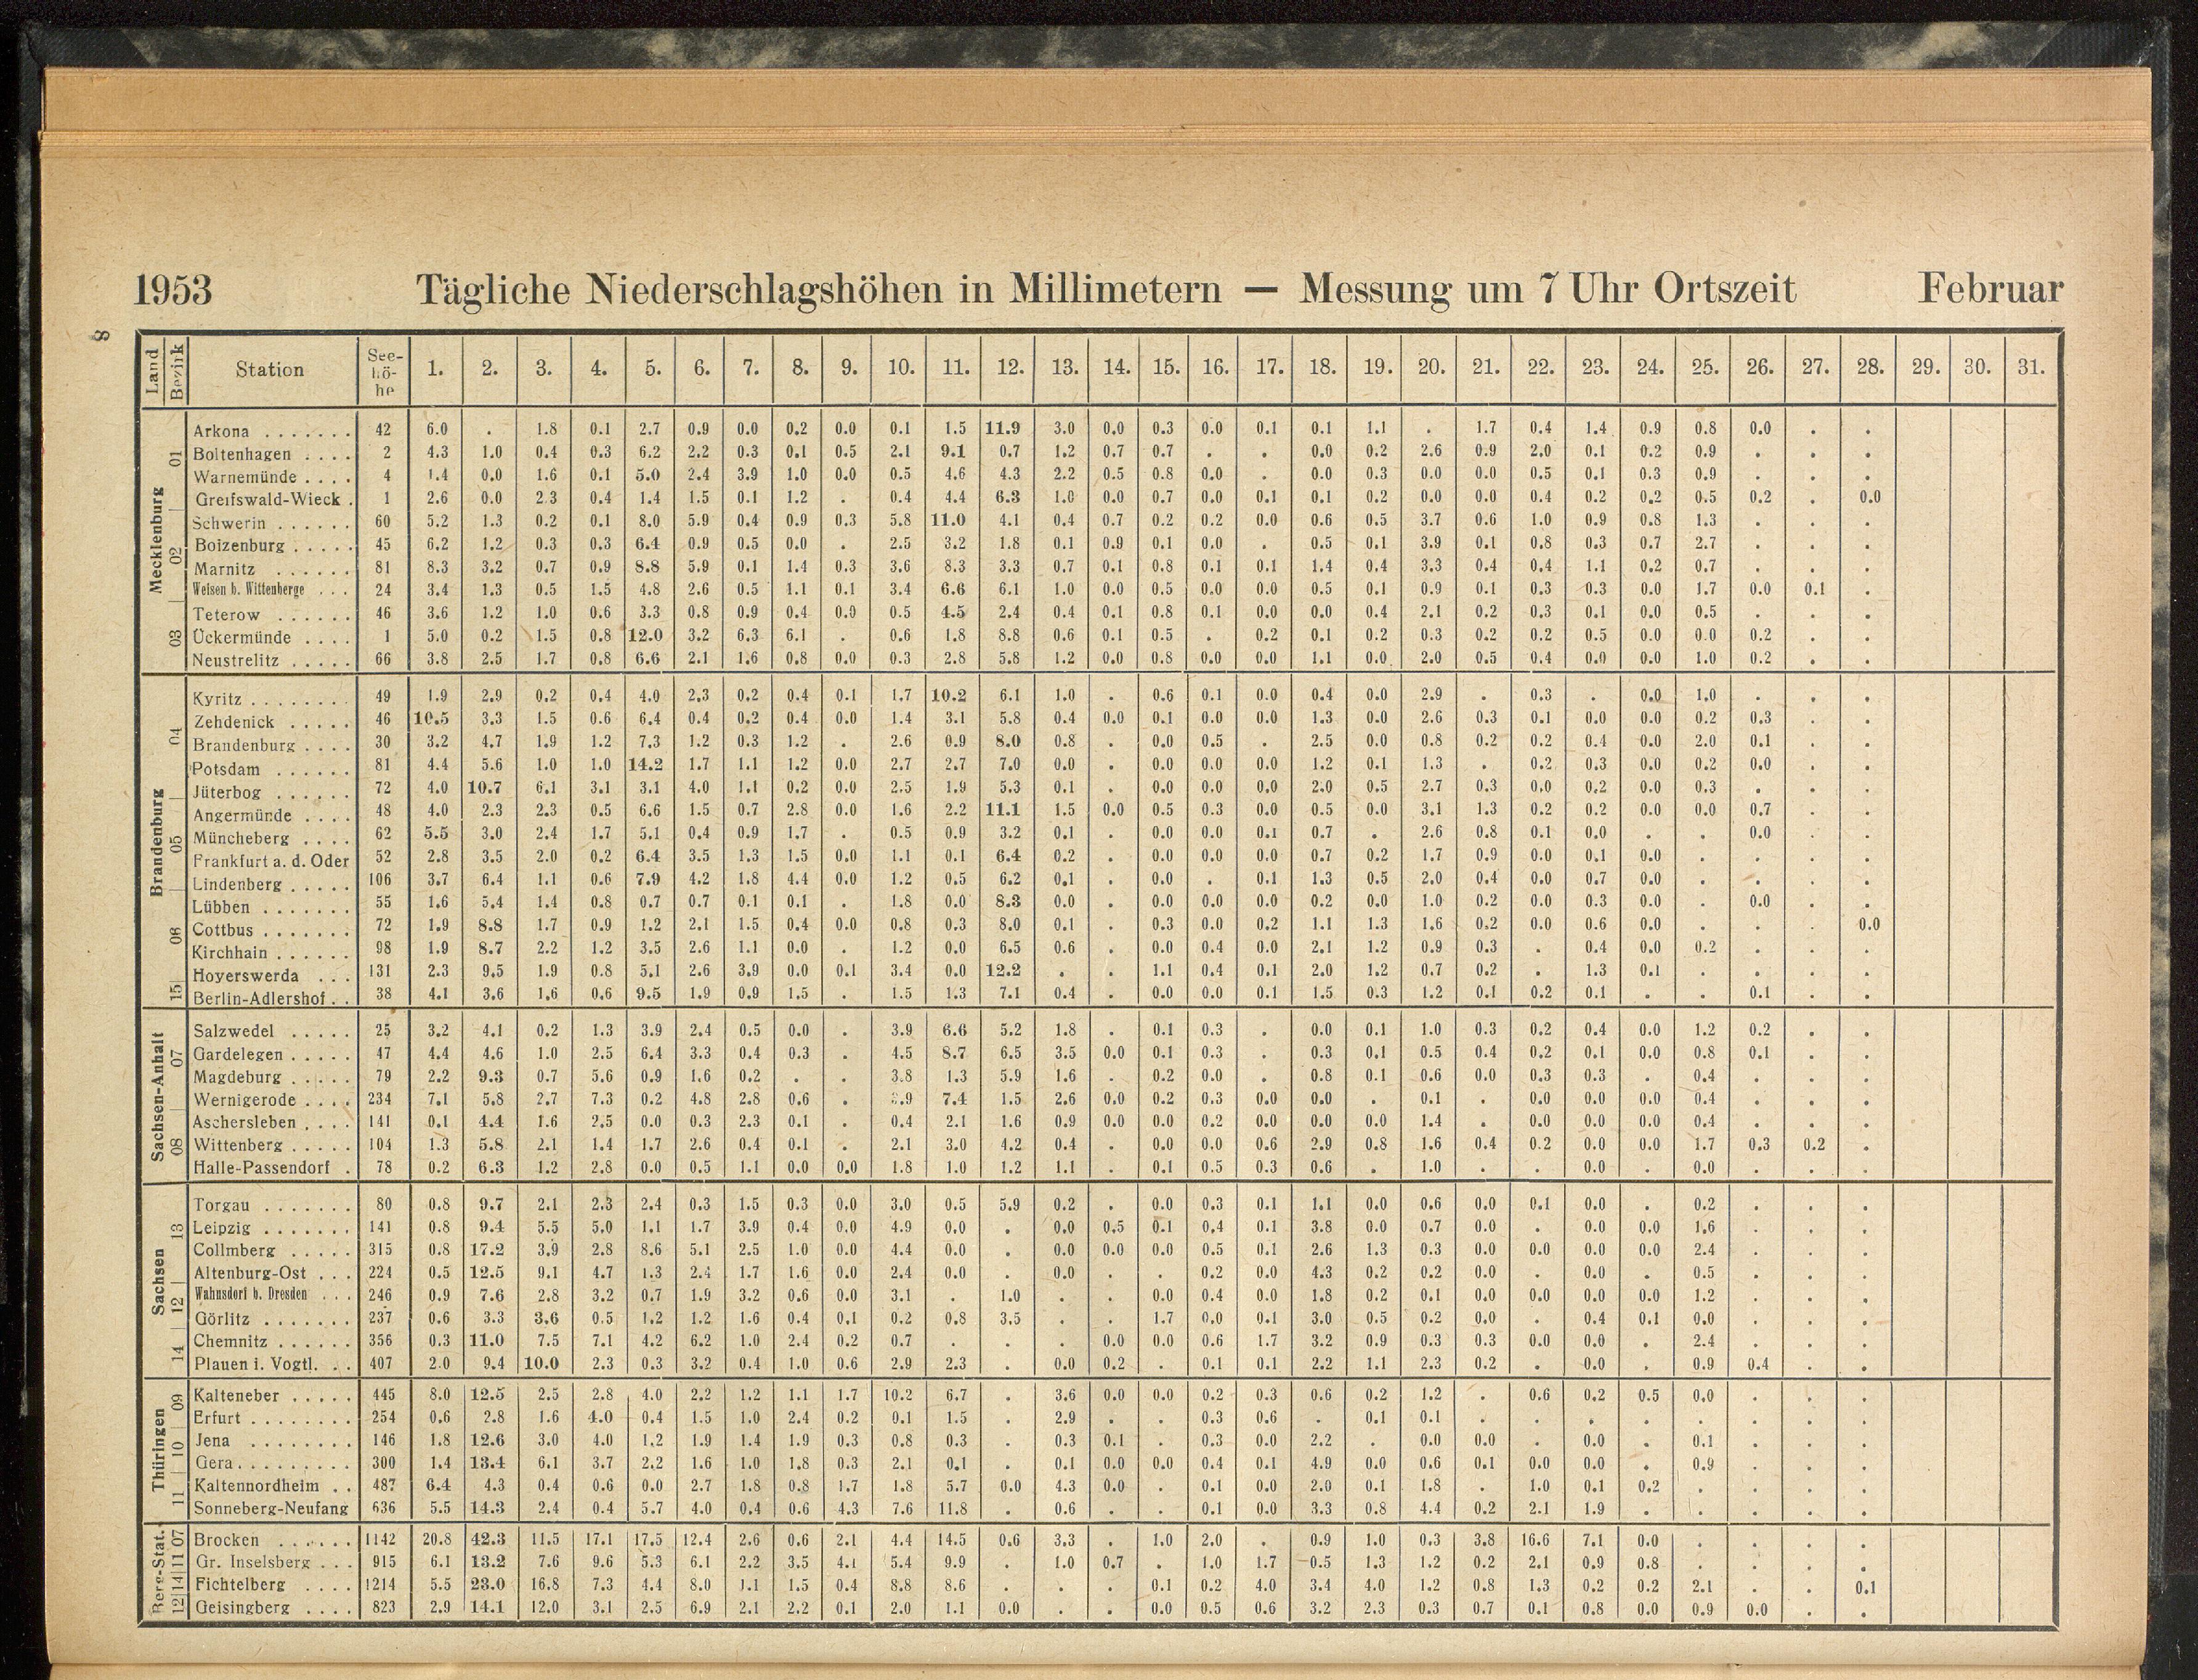 1953 Tägliche Niederschlagshöhen in Millimetern — Messung um 7 Uhr Ortszeit Februar
8
Land Bezirk Station See-hö-he 1. 2. 3. 4. 5. 6. 7. 8. 9. 10. 11. 12. 13. 14. 15. 16. 17. 18. 19. 20. 21. 22. 23. 24. 25. 26. 27. 28. 29. 30. 31.
Mecklenburg
01
Arkona . . . . . . . 42 6.0 . 1.8 0.1 2.7 0.9 0.0 0.2 0.0 0.1 1.5 11.9 3.0 0.0 0.3 0.0 0.1 0.1 1.1 . 1.7 0.4 1.4 0.9 0.8 0.0 . .
Boltenhagen . . . . 2 4.3 1.0 0.4 0.3 6.2 2.2 0.3 0.1 0.5 2.1 9.1 0.7 1.2 0.7 0.7 . . 0.0 0.2 2.6 0.9 2.0 0.1 0.2 0.9 . . .
Warnemünde . . . . 4 1.4 0.0 1.6 0.1 5.0 2.4 3.9 1.0 0.0 0.5 4.6 4.3 2.2 0.5 0.8 0.0 . 0.0 0.3 0.0 0.0 0.5 0.1 0.3 0.9 . . .
Greifswald-Wieck . 1 2.6 0.0 2.3 0.4 1.4 1.5 0.1 1.2 . 0.4 4.4 6.3 1.0 0.0 0.7 0.0 0.1 0.1 0.2 0.0 0.0 0.4 0.2 0.2 0.5 0.2 . 0.0
02
Schwerin . . . . . . 60 5.2 1.3 0.2 0.1 8.0 5.9 0.4 0.9 0.3 5.8 11.0 4.1 0.4 0.7 0.2 0.2 0.0 0.6 0.5 3.7 0.6 1.0 0.9 0.8 1.3 . . .
Boizenburg . . . . . 45 6.2 1.2 0.3 0.3 6.4 0.9 0.5 0.0 . 2.5 3.2 1.8 0.1 0.9 0.1 0.0 . 0.5 0.1 3.9 0.1 0.8 0.3 0.7 2.7 . . .
Marnitz . . . . . . 81 8.3 3.2 0.7 0.9 8.8 5.9 0.1 1.4 0.3 3.6 8.3 3.3 0.7 0.1 0.8 0.1 0.1 1.4 0.4 3.3 0.4 0.4 1.1 0.2 0.7 . . .
Weisen b. Wittenberge . . . 24 3.4 1.3 0.5 1.5 4.8 2.6 0.5 1.1 0.1 3.4 6.6 6.1 1.0 0.0 0.5 0.0 0.0 0.5 0.1 0.9 0.1 0.3 0.3 0.0 1.7 0.0 0.1 .
03
Teterow . . . . . . 46 3.6 1.2 1.0 0.6 3.3 0.8 0.9 0.4 0.0 0.5 4.5 2.4 0.4 0.1 0.8 0.1 0.0 0.0 0.4 2.1 0.2 0.3 0.1 0.0 0.5 . . .
Ückermünde . . . . 1 5.0 0.2 1.5 0.8 12.0 3.2 6.3 6.1 . 0.6 1.8 8.8 0.6 0.1 0.5 . 0.2 0.1 0.2 0.3 0.2 0.2 0.5 0.0 0.0 0.2 . .
Neustrelitz . . . . . 66 3.8 2.5 1.7 0.8 6.6 2.1 1.6 0.8 0.0 0.3 2.8 5.8 1.2 0.0 0.8 0.0 0.0 1.1 0.0 2.0 0.5 0.4 0.0 0.0 1.0 0.2 . .
Brandenburg
04
Kyritz . . . . . . . . 49 1.9 2.9 0.2 0.4 4.0 2.3 0.2 0.4 0.1 1.7 10.2 6.1 1.0 . 0.6 0.1 0.0 0.4 0.0 2.9 . 0.3 . 0.0 1.0 . . .
Zehdenick . . . . . 46 10.5 3.3 1.5 0.6 6.4 0.4 0.2 0.4 0.0 1.4 3.1 5.8 0.4 0.0 0.1 0.0 0.0 1.3 0.0 2.6 0.3 0.1 0.0 0.0 0.2 0.3 . .
Brandenburg . . . . 30 3.2 4.7 1.9 1.2 7.3 1.2 0.3 1.2 . 2.6 0.9 8.0 0.8 . 0.0 0.5 . 2.5 0.0 0.8 0.2 0.2 0.4 0.0 2.0 0.1 . .
Potsdam . . . . . . 81 4.4 5.6 1.0 1.0 14.2 1.7 1.1 1.2 0.0 2.7 2.7 7.0 0.0 . 0.0 0.0 0.0 1.2 0.1 1.3 . 0.2 0.3 0.0 0.2 0.0 . .
Jüterbog . . . . . . 72 4.0 10.7 6.1 3.1 3.1 4.0 1.1 0.2 0.0 2.5 1.9 5.3 0.1 . 0.0 0.0 0.0 2.0 0.5 2.7 0.3 0.0 0.2 0.0 0.3 . . .
05
Angermünde . . . . 48 4.0 2.3 2.3 0.5 6.6 1.5 0.7 2.8 0.0 1.6 2.2 11.1 1.5 0.0 0.5 0.3 0.0 0.5 0.0 3.1 1.3 0.2 0.2 0.0 0.0 0.7 . .
Müncheberg . . . . 62 5.5 3.0 2.4 1.7 5.1 0.4 0.9 1.7 . 0.5 0.9 3.2 0.1 . 0.0 0.0 0.1 0.7 . 2.6 0.8 0.1 0.0 . . 0.0 . .
Frankfurt a. d. Oder 52 2.8 3.5 2.0 0.2 6.4 3.5 1.3 1.5 0.0 1.1 0.1 6.4 0.2 . 0.0 0.0 0.0 0.7 0.2 1.7 0.9 0.0 0.1 0.0 . . . .
Lindenberg . . . . . 106 3.7 6.4 1.1 0.6 7.9 4.2 1.8 4.4 0.0 1.2 0.5 6.2 0.1 . 0.0 . 0.1 1.3 0.5 2.0 0.4 0.0 0.7 0.0 . . . .
06
Lübben . . . . . . . 55 1.6 5.4 1.4 0.8 0.7 0.7 0.1 0.1 . 1.8 0.0 8.3 0.0 . 0.0 0.0 0.0 0.2 0.0 1.0 0.2 0.0 0.3 0.0 . 0.0 . .
Cottbus . . . . . . . 72 1.9 8.8 1.7 0.9 1.2 2.1 1.5 0.4 0.0 0.8 0.3 8.0 0.1 . 0.3 0.0 0.2 1.1 1.3 1.6 0.2 0.0 0.6 0.0 . . . 0.0
Kirchhain . . . . . . 98 1.9 8.7 2.2 1.2 3.5 2.6 1.1 0.0 . 1.2 0.0 6.5 0.6 . 0.0 0.4 0.0 2.1 1.2 0.9 0.3 . 0.4 0.0 0.2 . . .
Hoyerswerda . . . 131 2.3 9.5 1.9 0.8 5.1 2.6 3.9 0.0 0.1 3.4 0.0 12.2 . . 1.1 0.4 0.1 2.0 1.2 0.7 0.2 . 1.3 0.1 . . . .
15
Berlin-Adlershof . . 38 4.1 3.6 1.6 0.6 9.5 1.9 0.9 1.5 . 1.5 1.3 7.1 0.4 . 0.0 0.0 0.1 1.5 0.3 1.2 0.1 0.2 0.1 . . 0.1 . .
Sachsen-Anhalt
07
Salzwedel . . . . . 25 3.2 4.1 0.2 1.3 3.9 2.4 0.5 0.0 . 3.9 6.6 5.2 1.8 . 0.1 0.3 . 0.0 0.1 1.0 0.3 0.2 0.4 0.0 1.2 0.2 . .
Gardelegen . . . . . 47 4.4 4.6 1.0 2.5 6.4 3.3 0.4 0.3 . 4.5 8.7 6.5 3.5 0.0 0.1 0.3 . 0.3 0.1 0.5 0.4 0.2 0.1 0.0 0.8 0.1 . .
Magdeburg . . . . . 79 2.2 9.3 0.7 5.6 0.9 1.6 0.2 . . 3.8 1.3 5.9 1.6 . 0.2 0.0 . 0.8 0.1 0.6 0.0 0.3 0.3 . 0.4 . . .
Wernigerode . . . . 234 7.1 5.8 2.7 7.3 0.2 4.8 2.8 0.6 . 7.4 1.5 2.6 0.0 0.2 0.3 0.0 0.0 . 0.1 . 0.0 0.0 0.0 0.4 . . .
08
Aschersleben . . . . 141 0.1 4.4 1.6 2.5 0.0 0.3 2.3 0.1 . 0.4 2.1 1.6 0.9 0.0 0.0 0.2 0.0 0.0 0.0 1.4 . 0.0 0.0 0.0 0.4 . . .
Wittenberg . . . . . 104 1.3 5.8 2.1 1.4 1.7 2.6 0.4 0.1 . 2.1 3.0 4.2 0.4 . 0.0 0.0 0.6 2.9 0.8 1.6 0.4 0.2 0.0 0.0 1.7 0.3 0.2 .
Halle-Passendorf . 78 0.2 6.3 1.2 2.8 0.0 0.5 1.1 0.0 0.0 1.8 1.0 1.2 1.1 . 0.1 0.5 0.3 0.6 . 1.0 . . 0.0 . 0.0 . . .
Sachsen
13
Torgau . . . . . . . 80 0.8 9.7 2.1 2.3 2.4 0.3 1.5 0.3 0.0 3.0 0.5 5.9 0.2 . 0.0 0.3 0.1 1.1 0.0 0.6 0.0 0.1 0.0 . 0.2 . . .
Leipzig . . . . . . . 141 0.8 9.4 5.5 5.0 1.1 1.7 3.9 0.4 0.0 4.9 0.0 . 0.0 0.5 0.1 0.4 0.1 3.8 0.0 0.7 0.0 . 0.0 0.0 1.6 . . .
Collmberg . . . . . 315 0.8 17.2 3.9 2.8 8.6 5.1 2.5 1.0 0.0 4.4 0.0 . 0.0 0.0 0.0 0.5 0.1 2.6 1.3 0.3 0.0 0.0 0.0 0.0 2.4 . . .
Altenburg-Ost . . . 224 0.5 12.5 9.1 4.7 1.3 2.4 1.7 1.6 0.0 2.4 0.0 . 0.0 . . 0.2 0.0 4.3 0.2 0.2 0.0 . 0.0 . 0.5 . . .
12
Wahnsdorf b. Dresden . . . 246 0.9 7.6 2.8 3.2 0.7 1.9 3.2 0.6 0.0 3.1 . 1.0 . . 0.0 0.4 0.0 1.8 0.2 0.1 0.0 0.0 0.0 0.0 1.2 . . .
Görlitz . . . . . . . 237 0.6 3.3 3.6 0.5 1.2 1.2 1.6 0.4 0.1 0.2 0.8 3.5 . . 1.7 0.0 0.1 3.0 0.5 0.2 0.0 . 0.4 0.1 0.0 . . .
14
Chemnitz . . . . . . 356 0.3 11.0 7.5 7.1 4.2 6.2 1.0 2.4 0.2 0.7 . . . 0.0 0.0 0.6 1.7 3.2 0.9 0.3 0.3 0.0 0.0 . 2.4 . . .
Plauen i. Vogtl. . . 407 2.0 9.4 10.0 2.3 0.3 3.2 0.4 1.0 0.6 2.9 2.3 . 0.0 0.2 . 0.1 0.1 2.2 1.1 2.3 0.2 . 0.0 . 0.9 0.4 . .
Thüringen
09
Kalteneber . . . . . 445 8.0 12.5 2.5 2.8 4.0 2.2 1.2 1.1 1.7 10.2 6.7 . 3.6 0.0 0.0 0.2 0.3 0.6 0.2 1.2 . 0.6 0.2 0.5 0.0 . . .
Erfurt . . . . . . . . 254 0.6 2.8 1.6 4.0 0.4 1.5 1.0 2.4 0.2 0.1 1.5 . 2.9 . . 0.3 0.6 . 0.1 0.1 . . . . . . . .
10
Jena . . . . . . . . 146 1.8 12.6 3.0 4.0 1.2 1.9 1.4 1.9 0.3 0.8 0.3 . 0.3 0.1 . 0.3 0.0 2.2 . 0.0 0.0 . 0.0 . 0.1 . . .
Gera . . . . . . . . . 300 1.4 13.4 6.1 3.7 2.2 1.6 1.0 1.8 0.3 2.1 0.1 . 0.1 0.0 0.0 0.4 0.1 4.9 0.0 0.6 0.1 0.0 0.0 . 0.9 . . .
11
Kaltennordheim . . 487 6.4 4.3 0.4 0.6 0.0 2.7 1.8 0.8 1.7 1.8 5.7 0.0 4.3 0.0 . 0.1 0.0 2.0 0.1 1.8 . 1.0 0.1 0.2 . . . .
Sonneberg-Neufang 636 5.5 14.3 2.4 0.4 5.7 4.0 0.4 0.6 4.3 7.6 11.8 . 0.6 . . 0.1 0.0 3.3 0.8 4.4 0.2 2.1 1.9 . . . . .
Berg-Stat.
12|14|11|07
Brocken . . . . . . 1142 20.8 42.3 11.5 17.1 17.5 12.4 2.6 0.6 2.1 4.4 14.5 0.6 3.3 . 1.0 2.0 . 0.9 1.0 0.3 3.8 16.6 7.1 0.0 . . . .
Gr. Inselsberg . . . 915 6.1 13.2 7.6 9.6 5.3 6.1 2.2 3.5 4.1 5.4 9.9 . 1.0 0.7 . 1.0 1.7 0.5 1.3 1.2 0.2 2.1 0.9 0.8 . . . .
Fichtelberg . . . . 1214 5.5 23.0 16.8 7.3 4.4 8.0 1.1 1.5 0.4 8.8 8.6 . . . 0.1 0.2 4.0 3.4 4.0 1.2 0.8 1.3 0.2 0.2 2.1 . . 0.1
Geisingberg . . . . 823 2.9 14.1 12.0 3.1 2.5 6.9 2.1 2.2 0.1 2.0 1.1 0.0 . . 0.0 0.5 0.6 3.2 2.3 0.3 0.7 0.1 0.8 0.0 0.9 0.0 . .